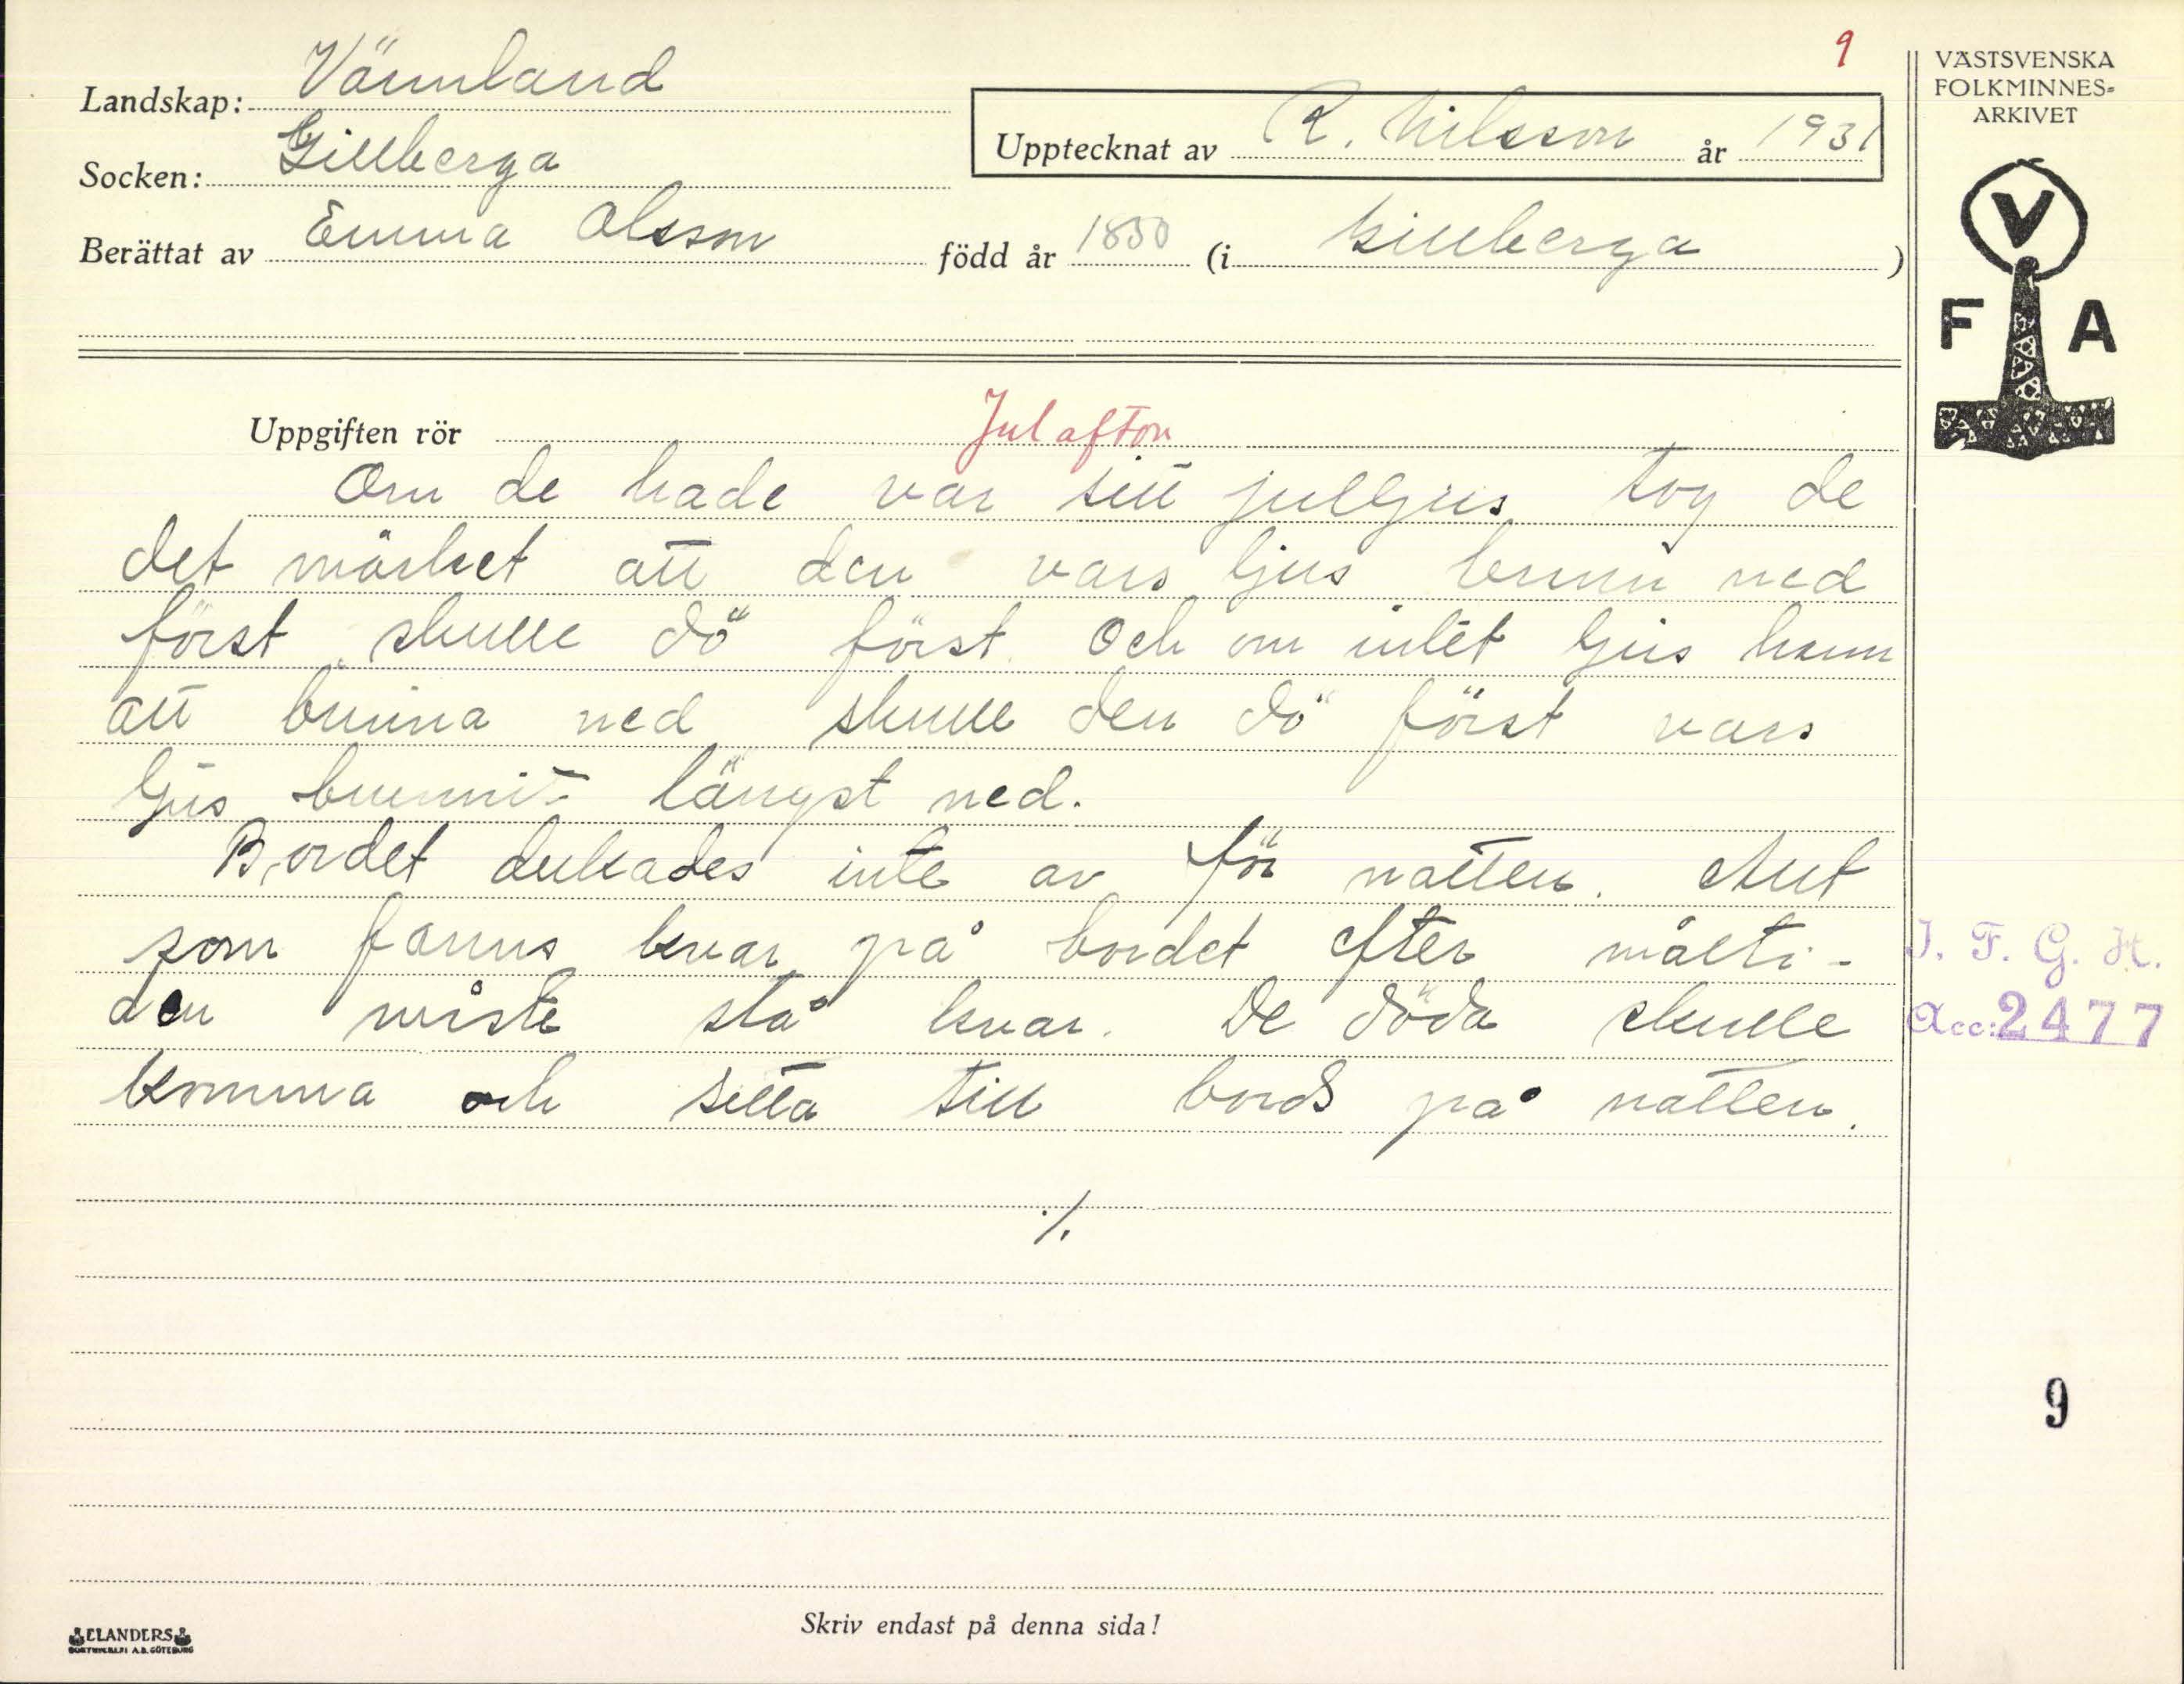 9
VÄSTSVENSKA
FOLKMINNES-
ARKIVET
Landskap: Värmland
Socken: Gillberga
Upptecknat av R. Nilsson år 1931
Berättat av Emma Olsson född år 1850 (i Gillberga )
V
F A
Uppgiften rör Julafton
Om de hade var sitt julljus tog de
det märket att den vars ljus brunn ned
först skulle dö först. Och om intet ljus hann
att brinna ned skulle den dö först vars
ljus brunnit längst ned.
Bordet dukades inte av för natten. Allt
som fanns kvar på bordet efter målti-
den måste stå kvar. De döda skulle
komma och sitta till bords på natten.
./.
I. F. G. H.
Acc: 2477
9
Skriv endast på denna sida!
ELANDERS
BOKTRYCKERI A.B. GÖTEBORG